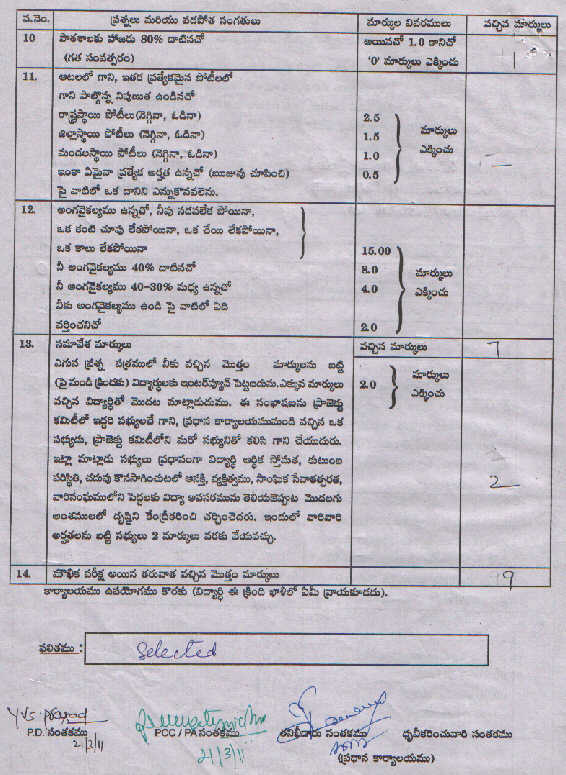 వ.నెం. ప్రశ్నలు మరియు వడపోత సంగతులు మార్కుల వివరములు వచ్చిన మార్కులు
10 పాఠశాలకు హాజరు 80% దాటినచో అయినచో 1.0 కానిచో
(గత సంవత్సరం) '0' మార్కులు ఎక్కించు 1
11. ఆటలలో గాని, ఇతర ప్రత్యేకమైన పోటీలలో
గాని పాల్గొన్న నిపుణత ఉండినచో
రాష్ట్రస్థాయి పోటీలు(నెగ్గినా, ఓడినా) 2.5
జిల్లాస్థాయి పోటీలు (నెగ్గినా, ఓడినా) 1.5 మార్కులు
మండలస్థాయి పోటీలు (నెగ్గినా, ఓడినా) 1.0 ఎక్కించు
ఇంకా ఏమైనా ప్రత్యేక అర్హత ఉన్నచో (ఋజువు చూపించి) 0.5
పై వాటిలో ఒక దానిని ఎన్నుకొనవలెను.
12. అంగవైకల్యము ఉన్నచో, నీవు నడవలేక పోయినా,
ఒక కంటి చూపు లేకపోయినా, ఒక చేయి లేకపోయినా,
ఒక కాలు లేకపోయినా 15.00
నీ అంగవైకల్యము 40% దాటినచో 8.0 మార్కులు
నీ అంగవైకల్యము 40-30% మధ్య ఉన్నచో 4.0 ఎక్కించు
నీకు అంగవైకల్యము ఉండి పై వాటిలో ఏది
వర్తించనిచో 2.0
13. సమావేశ మార్కులు వచ్చిన మార్కులు 7
ఎగువ ప్రశ్న పత్రములో నీకు వచ్చిన మొత్తం మార్కులను బట్టి
(పై నుండి క్రిందకు) విద్యార్థులకు ఇంటర్వ్యూన్ పెట్టబడును.ఎక్కువ మార్కులు 2.0 మార్కులు
వచ్చిన విద్యార్థితో మొదట మాట్లాడుదుము. ఈ సంభాషణను ప్రాజెక్టు ఎక్కించు
కమిటీలో ఇద్దరి సభ్యులతే గాని, ప్రధాన కార్యాలయమునుండి వచ్చిన ఒక
సభ్యుడు, ప్రాజెక్టు కమిటీలోని మరో సభ్యునితో కలిసి గాని చేయుదురు.
ఇట్లా మాట్లాడు సభ్యులు ప్రధానంగా విద్యార్థి ఆర్థిక స్తోమత, కుటుంబ
పరిస్థితి, చదువు కొనసాగించుటలో ఆసక్తి, వ్యక్తిత్వము, సాంఘిక సేవాతత్పరత, 2
వారిసంఘములోని పెద్దలకు విద్యా అవసరమును తెలియజెప్పుట మొదలగు
అంశములలో దృష్టిని కేంద్రీకరించి చర్చించెదరు. ఇందులో వారివారి
అర్హతలను బట్టి సభ్యులు 2 మార్కులు వరకు వేయవచ్చు.
14. మౌఖిక పరీక్ష అయిన తరువాత వచ్చిన మొత్తం మార్కులు 9
కార్యాలయము ఉపయోగము కొరకు (విద్యార్థి ఈ క్రింది ఖాళీలో ఏమీ వ్రాయకూడదు).
ఫలితము : Selected
P.D. సంతకము PCC / PA సంతకము తనిఖీదారు సంతకము ధృవీకరించువారి సంతకము
2/3/11 2/3/11 (ప్రధాన కార్యాలయము)